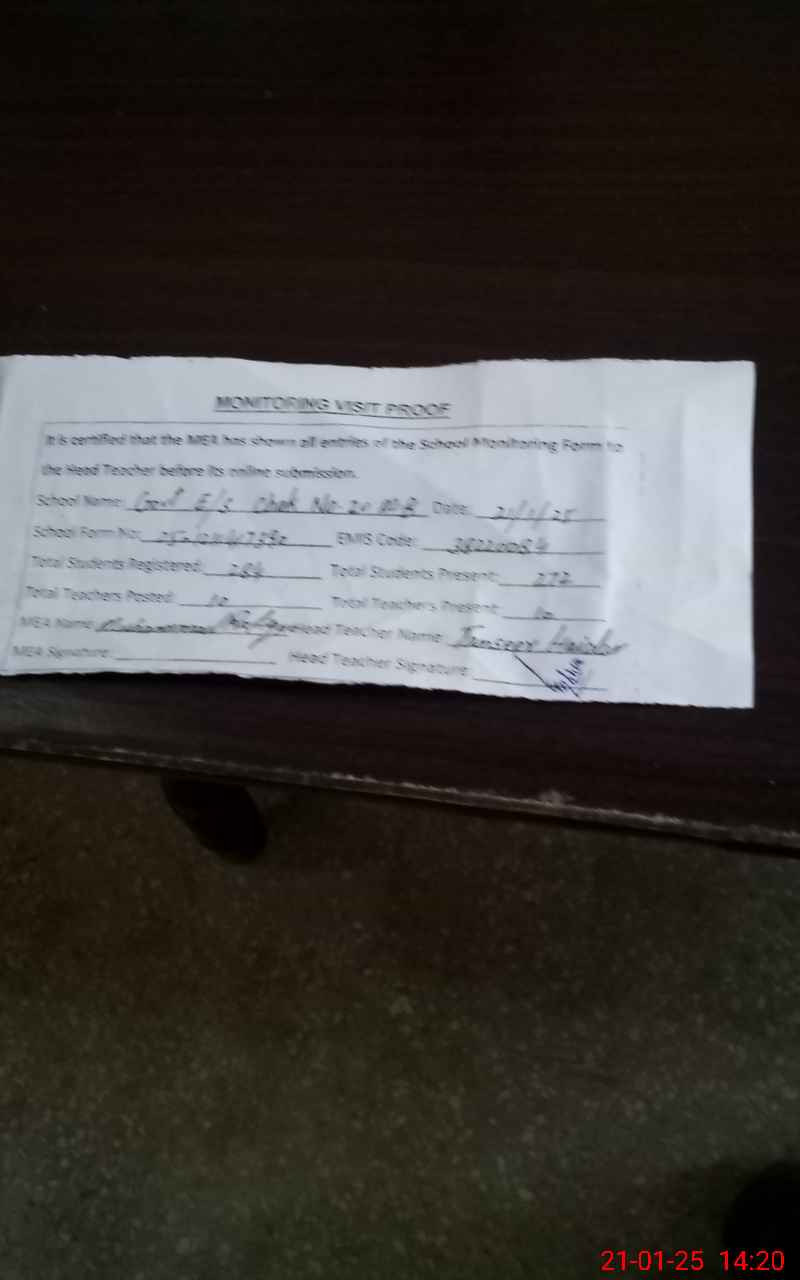 MONITORING VISIT PROOF
It is certified that the MEA has shown all entries of the School Monitoring Form to
the Head Teacher before its online submission.
School Name: Govt E/S Chak No. 20 MB Date: 21/1/25
School Form No: EMIS Code:
Total Students Registered: Total Students Present: 272
Total Teachers Posted: 10 Total Teachers Present: 10
MEA Name: Muhammad Head Teacher Name: Tanseer Haider
MEA Signature: Head Teacher Signature:
21-01-25 14:20